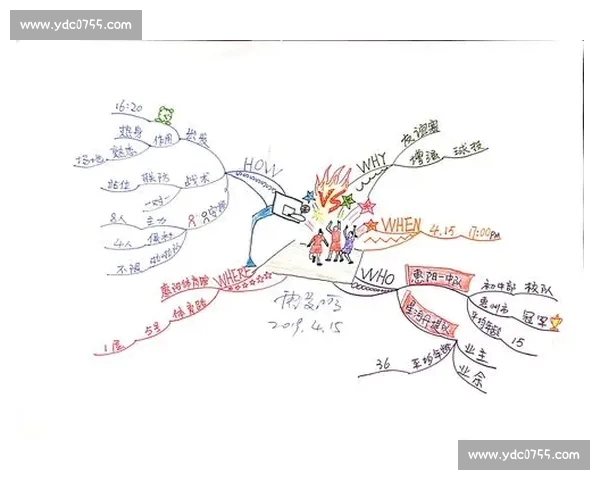 www.ydc0755.com
16:20
热身
作用
出发
场地
熟悉
HOW
站位
联防
战术
一对一
8人
主力
安排
4人
不限
VS
WHY
友谊赛
增强
球技
WHEN
4.15
17:00PM
WHO
惠阳一中队
初中部
校队
惠州市
冠军
平均年龄
15
业主
业余
平均年龄
36
WHERE
惠阳体育馆
体育路
5号
1层
2019.4.15
www.ydc0755.com